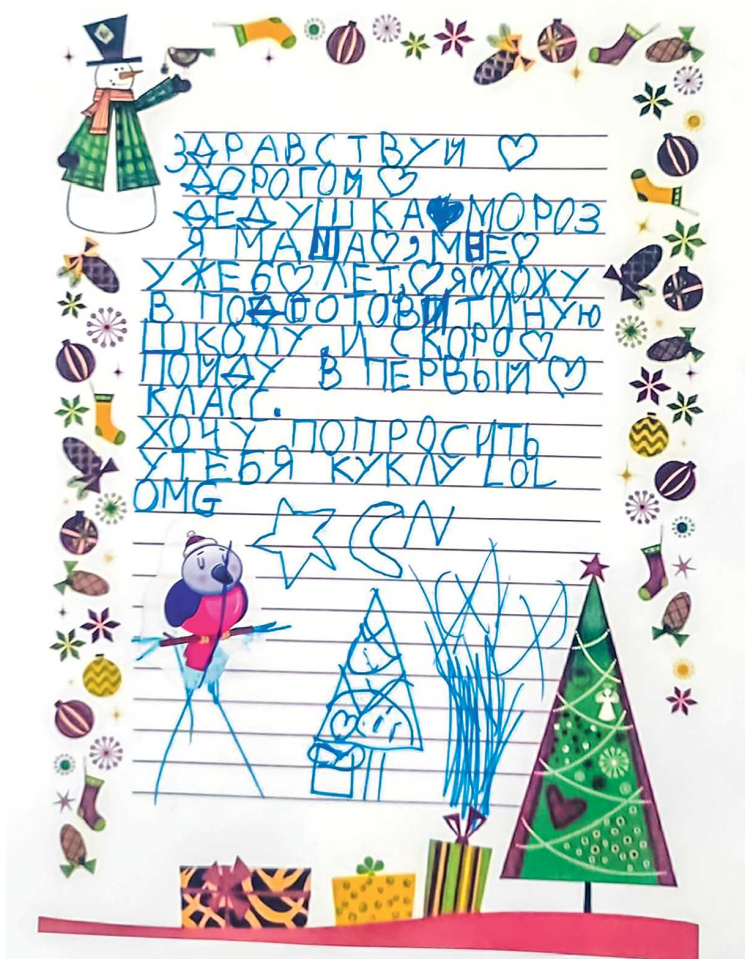 ЗДРАВСТВУЙ ♡
ДОРОГОЙ ♡
ДЕДУШКА♥МОРОЗ
Я МАША♡, МНЕ♡
УЖЕ 6♡ ЛЕТ.♡ Я♡ХОЖУ
В ПОДГОТОВИТИНУЮ
ШКОЛУ. И СКОРО♡
ПОЙДУ В ПЕРВЫЙ♡
КЛАСС.
ХОЧУ ПОПРОСИТЬ
У ТЕБЯ КУКЛУ LOL
OMG